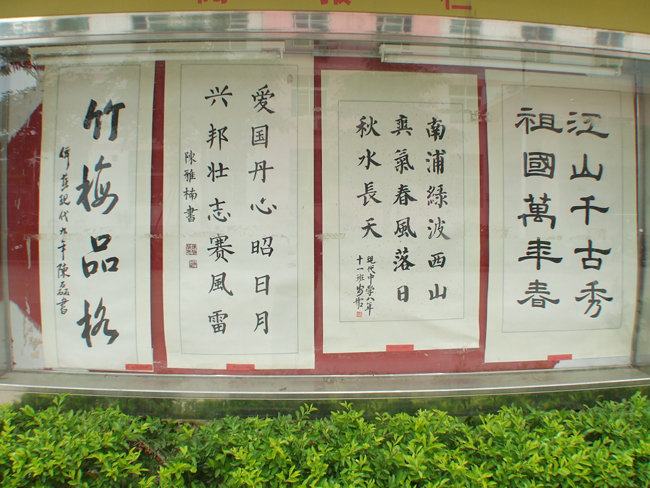 竹梅品格
现代九年陳磊書
愛国丹心昭日月
兴邦壮志赛風雷
陳雅楠書
南浦綠波西山
爽氣春風落日
秋水長天
现代中学八年
十一班
江山千古秀
祖國萬年春